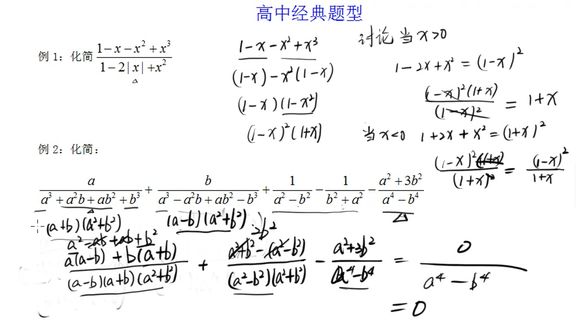 高中经典题型
例 1：化简 (1-x-x²+x³)/(1-2|x|+x²)
1-x-x²+x³
(1-x)-x²(1-x)
(1-x)(1-x²)
(1-x)²(1+x)
讨论 当 x>0
1-2x+x²=(1-x)²
(1-x)²(1+x)/(1-x)² = 1+x
当 x<0 1+2x+x²=(1+x)²
(1-x)²(1+x)/(1+x)² = (1-x)²/(1+x)
例 2：化简：
a/(a³+a²b+ab²+b³) + b/(a³-a²b+ab²-b³) + 1/(a²-b²) - 1/(b²+a²) - (a²+3b²)/(a⁴-b⁴)
(a+b)(a²+b²) (a-b)(a²+b²) 2b²
a²-ab+ab+b²
(a(a-b)+b(a+b))/((a-b)(a+b)(a²+b²)) + (a²+b²-(a²-b²))/((a²-b²)(a²+b²)) - (a²+3b²)/(a⁴-b⁴) = 0/(a⁴-b⁴)
=0